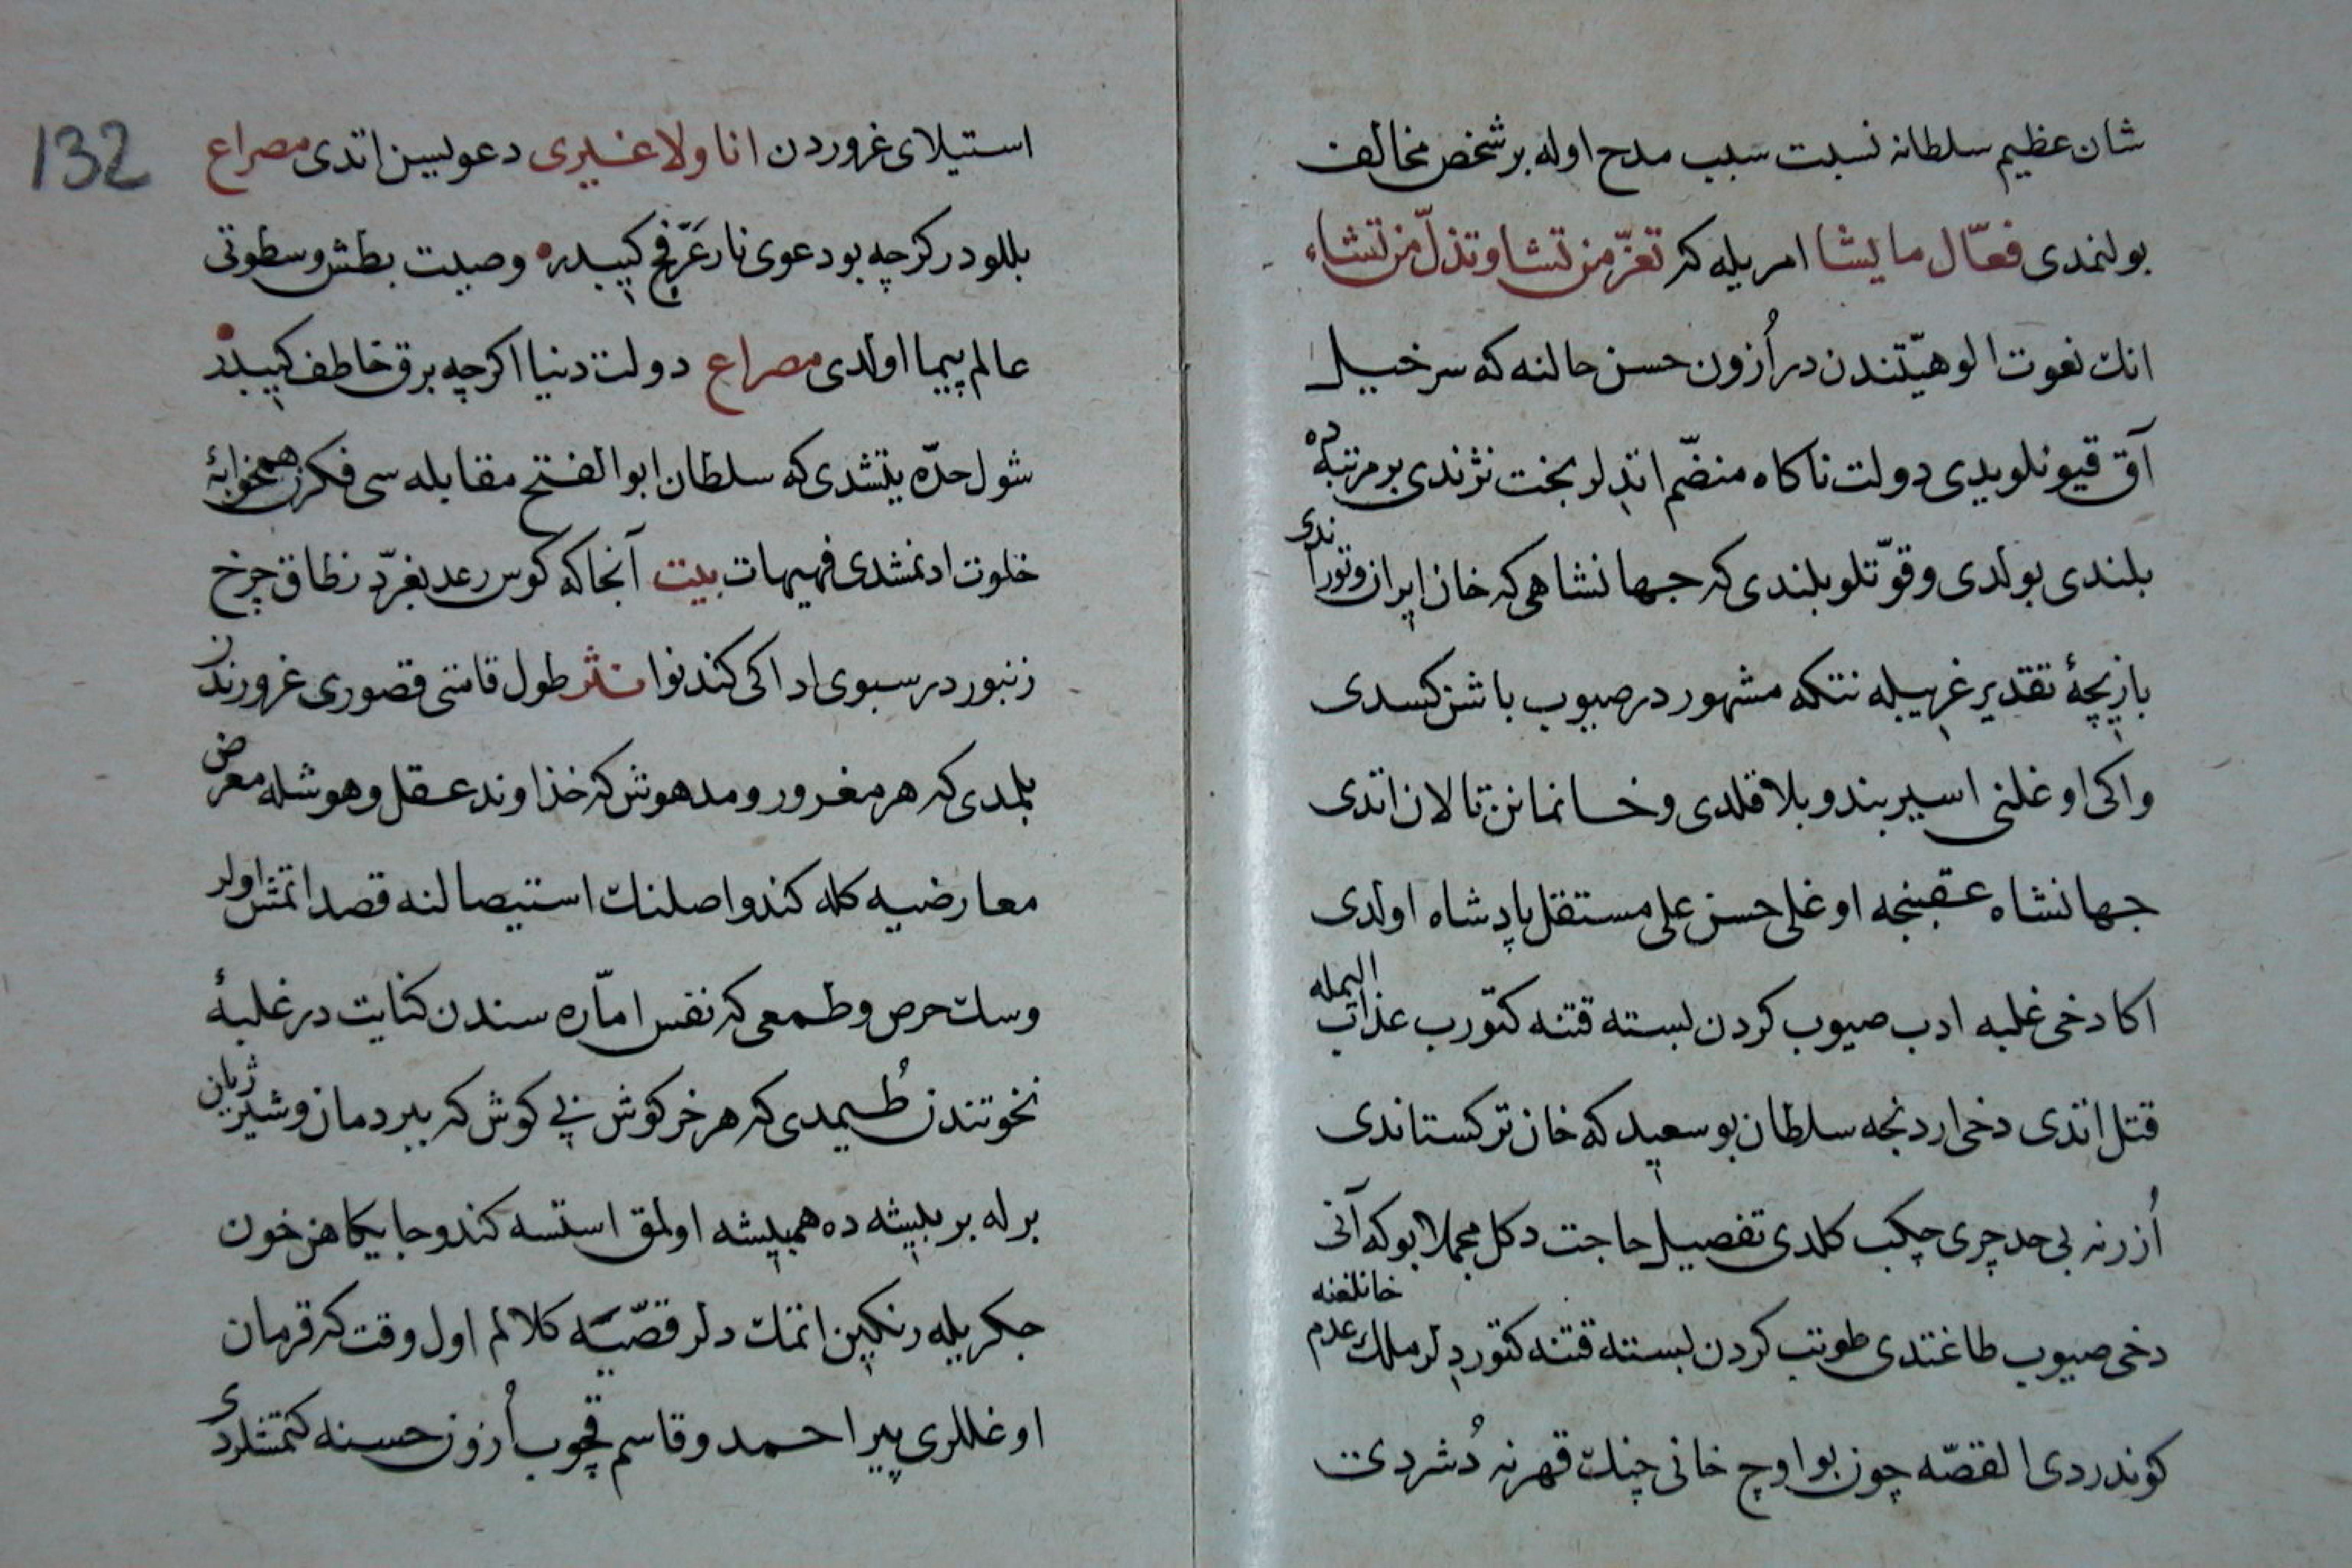 شان عظیم سلطانه نسبت سبب مدح اوله بر شخص مخالف
بولنمدی فعّال ما یشا امریله که تعزّ من تشا و تذلّ من تشاء
انك نعوت الوهیّتندن در اُزون حسن حالنه که سرخیل
آق قیونلویدی دولت ناکاه منضّم اتدیلر بخت نژندی بر مرتبه ده
بلندی بولدی و قوّتلو بلندی که جهانشاهی که خان ایران و توراندی
بازیچهٔ تقدیر غریبیله نتکه مشهور در صیوب باشن کسدی
و اکی اوغلنی اسیر بند و بلا قلدی و خانمانن تالان اتدی
جهانشاه عقبنجه اوغلی حسن علی مستقل پادشاه اولدی
اکا دخی غلبه ادب صیوب کردن بسته قتنه کتورب عذاب الیمله
قتل اتدی دخی اردنجه سلطان بو سعید که خان ترکستاندی
اُزرنه بی حد چری چکب کلدی تفصیل حاجت دکل مجملا بو که آنی
دخی صیوب طاغتدی طوتب کردن بسته قتنه کتوردیلر ملك عدم خانلغنه
کوندردی القصّه چون بو اوچ خانی چنك قهرنه دُشردی
132
استیلای غروردن انا ولا غیری دعویسن اتدی مصراع
بللودر کرچه بو دعوی نار عَرْفج کیبیدر وصیت بطش و سطوتی
عالم پیما اولدی مصراع دولت دنیا اکرچه برق خاطف کیبیدر
شول حدّه یتشدی که سلطان ابو الفتح مقابله سی فکرن همخوابهٔ
خلوت ادنمشدی فهیهات بیت آنجا که کوس رعد بغرّد ز طاق چرخ
زنبور در سبوی ادا کی کند نوا نثر طول قامتی قصوری غروردندن
بلمدی که هر مغرور و مدهوش که خذاوند عقل و هوشله معرض
معارضیه کله کندو اصلنك استیصالنه قصد اتمش اولر
وسك حرص و طمعی که نفس امّاره سندن کنایت در غلبهٔ
نخوتندن طُیمدی که هر خرکوش بی کوش که ببر دمان و شیر ژیان
برله بر بیشه ده همپیشه اولمق استسه کندو جایکاهن خون
جکریله رنکین اتمك دلر قصّیه کلالم اول وقت که قرمان
اوغللری پیر احمد و قاسم قچوب اُزون حسنه کتمشلردی